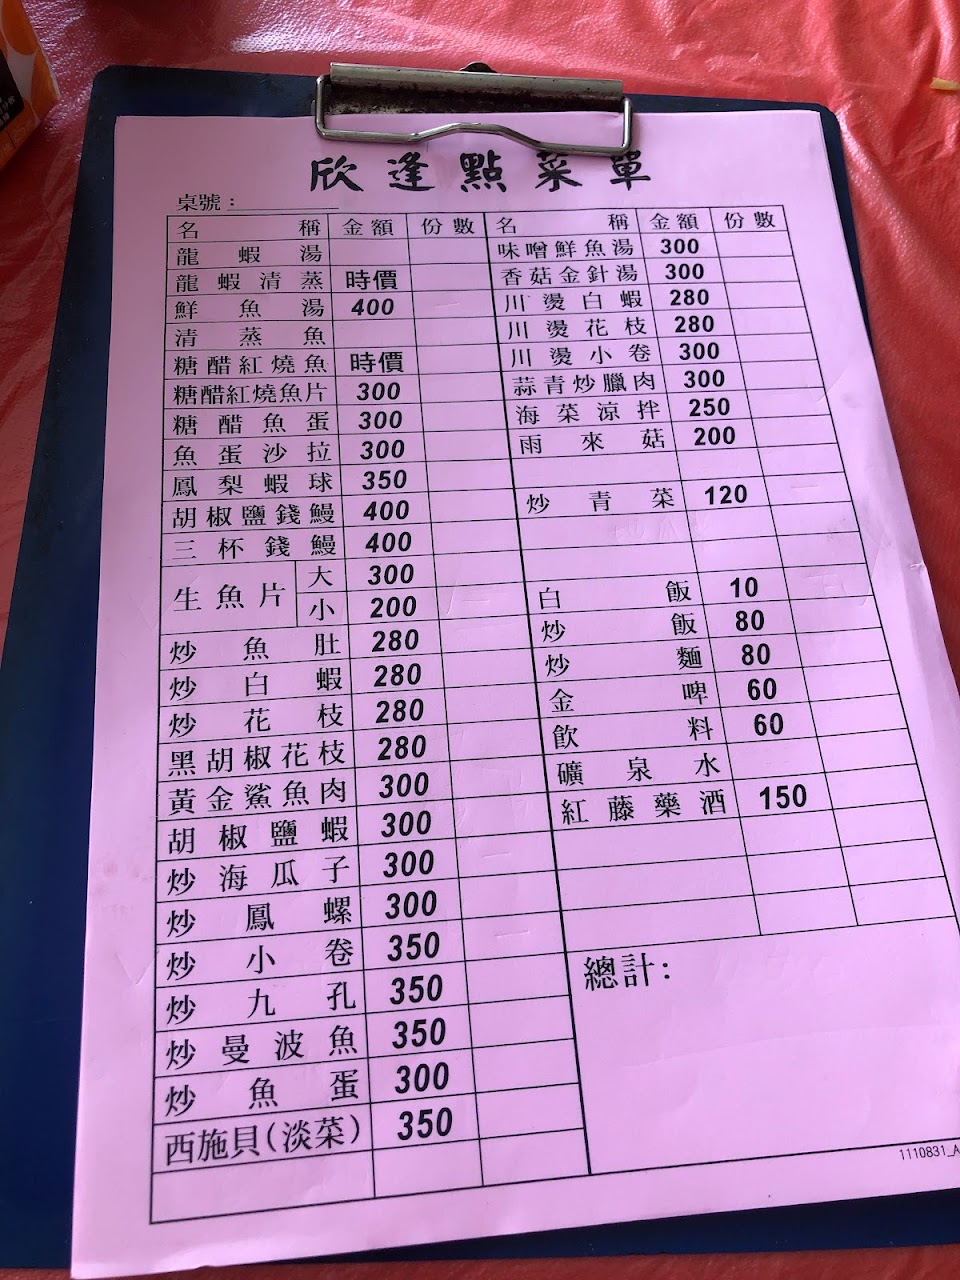 欣逢點菜單
桌號：
名稱 金額 份數
龍蝦湯
龍蝦清蒸 時價
鮮魚湯 400
清蒸魚
糖醋紅燒魚 時價
糖醋紅燒魚片 300
糖醋魚蛋 300
魚蛋沙拉 300
鳳梨蝦球 350
胡椒鹽錢鰻 400
三杯錢鰻 400
生魚片 大 300
小 200
炒魚肚 280
炒白蝦 280
炒花枝 280
黑胡椒花枝 280
黃金鯊魚肉 300
胡椒鹽蝦 300
炒海瓜子 300
炒鳳螺 300
炒小卷 350
炒九孔 350
炒曼波魚 350
炒魚蛋 300
西施貝(淡菜) 350
名稱 金額 份數
味噌鮮魚湯 300
香菇金針湯 300
川燙白蝦 280
川燙花枝 280
川燙小卷 300
蒜青炒臘肉 300
海菜涼拌 250
雨來菇 200
炒青菜 120
白飯 10
炒飯 80
炒麵 80
金啤 60
飲料 60
礦泉水
紅藤藥酒 150
總計：
1110831_A